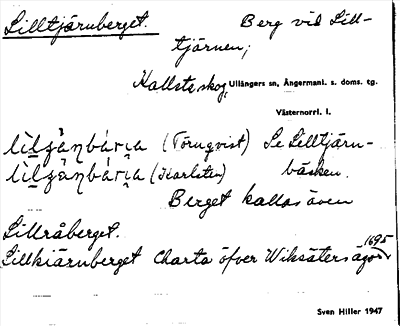 Lilltjärnberget. Berg vid Lill-
tjärnen;
Kallsta, skog, Ullångers sn, Ångermanl. s. doms. tg.
Västernorrl. l.
(Törnqvist) Se Lilltjärn-
(Karlsten) bäcken.
Berget kallas även
Lillråberget.
Lillkiärnberget Charta öfver Wiksäters ägor 1695
Sven Hiller 1947